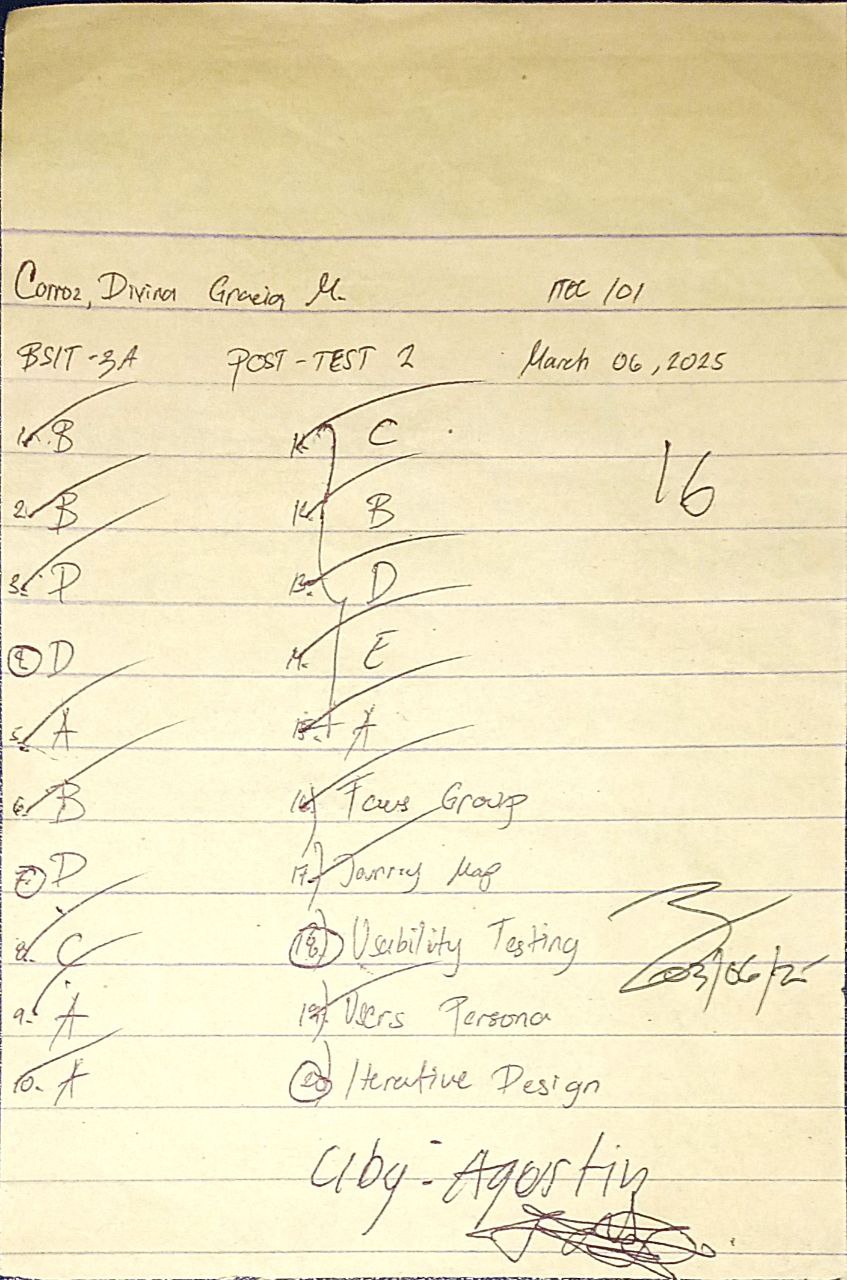 Corroz, Divina Gracia M. ITEC 101
BSIT-3A POST-TEST 2 March 06, 2025
1. B
2. B
3. D
4. D
5. A
6. B
7. D
8. C
9. A
10. A
11. C
12. B
13. D
14. E
15. A
16) Focus Group
17) Journey Map
18) Usability Testing
19) Users Persona
20) Iterative Design
16
03/06/25
C by: Agostin